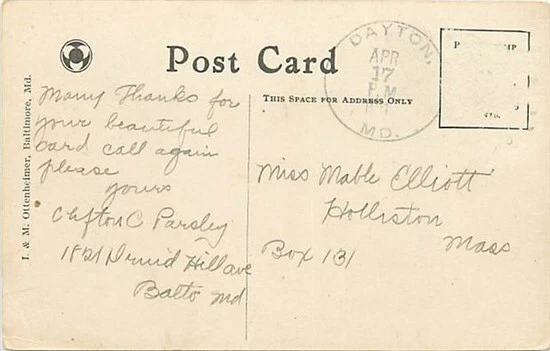 Post Card
DAYTON,
APR
17
P.M
MD.
THIS SPACE FOR ADDRESS ONLY
I. & M. Ottenheimer, Baltimore, Md.
Many Thanks for
your beautiful
card call again
please
yours
Clifton C Parsley
1821 Druid Hill ave
Balto Md.
Miss Mable Elliott
Holliston
Mass
Box 131